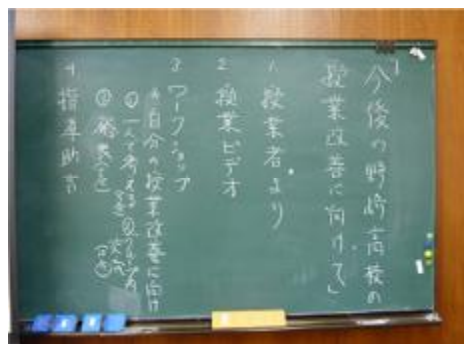 「今後の野崎高校の
授業改善に向けて」
1. 授業者より
2 授業ビデオ
3 ワークショップ
自分の授業改善に向け
① 一人で考える
② グループ内
③ 発表
4 指導助言